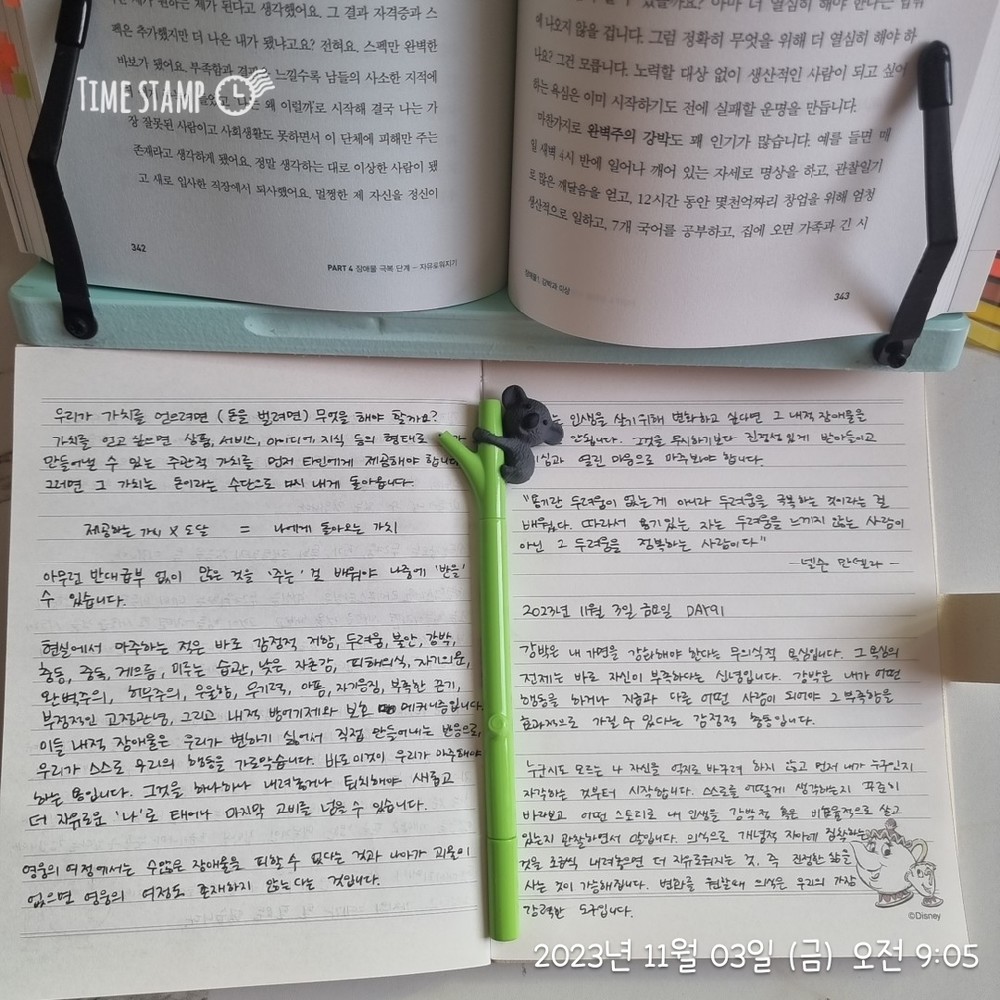 제가 된다고 생각했어요. 그 결과 자격증과 스
펙은 추가했지만 더 나은 내가 됐나고요? 전혀요. 스펙만 완벽한
바보가 됐어요. 부족함과 느낄수록 남들의 사소한 지적에
왜 이럴까'로 시작해 결국 나는 가
장 잘못된 사람이고 사회생활도 못하면서 이 단체에 피해만 주는
존재라고 생각하게 됐어요. 정말 생각하는 대로 이상한 사람이 됐
고 새로 입사한 직장에서 퇴사했어요. 멀쩡한 제 자신을 정신이
342
PART 4 장애물 극복 단계 – 자유로워지기
TIME STAMP
있을까요? 아마 더 열심히 해야 한다는
에 나오지 않을 겁니다. 그럼 정확히 무엇을 위해 더 열심히 해야 하
나요? 그건 모릅니다. 노력할 대상 없이 생산적인 사람이 되고 싶어
하는 욕심은 이미 시작하기도 전에 실패할 운명을 만듭니다.
마찬가지로 완벽주의 강박도 꽤 인기가 많습니다. 예를 들면 매
일 새벽 4시 반에 일어나 깨어 있는 자세로 명상을 하고, 관찰일기
로 많은 깨달음을 얻고, 12시간 동안 몇천억짜리 창업을 위해 엄청
생산적으로 일하고, 7개 국어를 공부하고, 집에 오면 가족과 긴 시
장애물1: 강박과 이상
343
우리가 가치를 얻으려면 (돈을 벌려면) 무엇을 해야 할까요?
가치를 얻고 싶으면 상품, 서비스, 아이디어, 지식 등의 형태로
만들어낼 수 있는 주관적 가치를 먼저 타인에게 제공해야 합니다.
그러면 그 가치는 돈이라는 수단으로 다시 내게 돌아옵니다.
제공하는 가치 x 도달 = 나에게 돌아오는 가치
아무런 반대급부 없이 많은 것을 '주는' 걸 배워야 나중에 '받을'
수 있습니다.
현실에서 마주하는 적은 바로 감정적 저항, 두려움, 불안, 강박,
충동, 중독, 게으름, 미루는 습관, 낮은 자존감, 피해의식, 자기의문,
완벽주의, 허무주의, 우울함, 무기력, 아픔, 자기응징, 부족한 끈기,
부정적인 고정관념, 그리고 내적 방어기제와 보호 메커니즘입니다.
이들 내적 장애물은 우리가 변하기 싫어서 직접 만들어내는 반응으로,
우리가 스스로 우리의 행동을 가로막습니다. 바로 이것이 우리가 마주해야
하는 용입니다. 그것을 하나하나 내려놓거나 퇴치해야 새롭고
더 자유로운 '나'로 태어나 마지막 고비를 넘을 수 있습니다.
영웅의 여정에서는 수많은 장애물을 피할 수 없다는 것과 나아가 괴물이
없으면 영웅의 여정도 존재하지 않는다는 것입니다.
인생을 살기 위해 변화하고 싶다면 그 내적 장애물을
안됩니다. 그것을 무시하기보다 진정성있게 받아들이고
열린 마음으로 마주봐야 합니다.
"용기란 두려움이 없는게 아니라 두려움을 극복하는 것이라는 걸
배웠다. 따라서 용기있는 자는 두려움을 느끼지 않는 사람이
아닌 그 두려움을 정복하는 사람이다"
- 넬슨 만델라 -
2023년 11월 3일 금요일 DAY91
강박은 내 가면을 강화해야 한다는 무의식적 욕심입니다. 그 욕심의
전제는 바로 자신이 부족하다는 신념입니다. 강박은 내가 어떤
행동을 하거나 지금과 다른 어떤 사람이 되어야 그 부족함을
효과적으로 가릴 수 있다는 감정적 충동입니다.
누군지도 모르는 나 자신을 억지로 바꾸려 하지 않고 먼저 내가 누구인지
자각하는 것부터 시작합니다. 스스로를 어떻게 생각하는지 꾸준히
바라보고 어떤 스토리로 내 인생을 강박적 혹은 비효율적으로 살고
있는지 관찰하면서 말입니다. 의식으로 개념적 자아에 집착하는
것을 조금씩 내려놓으면 더 자유로워지는 것, 즉 진정한 삶을
사는 것이 가능해집니다. 변화를 원할때 의식은 우리의 가장
강력한 도구입니다.
©Disney
2023년 11월 03일 (금) 오전 9:05